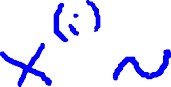 x^(i) ~